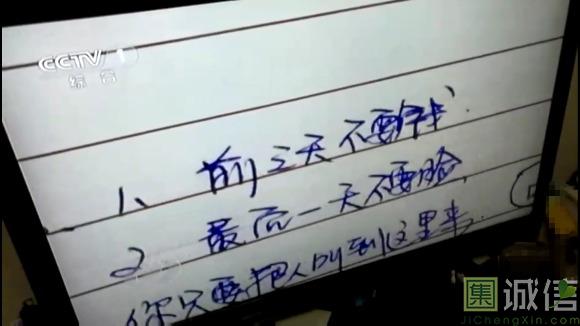 CCTV 1
综合
1、前三天不要钱、
2 最后一天不要脸、
你只要把人叫到这里来、
集 诚信
JiChengXin.com